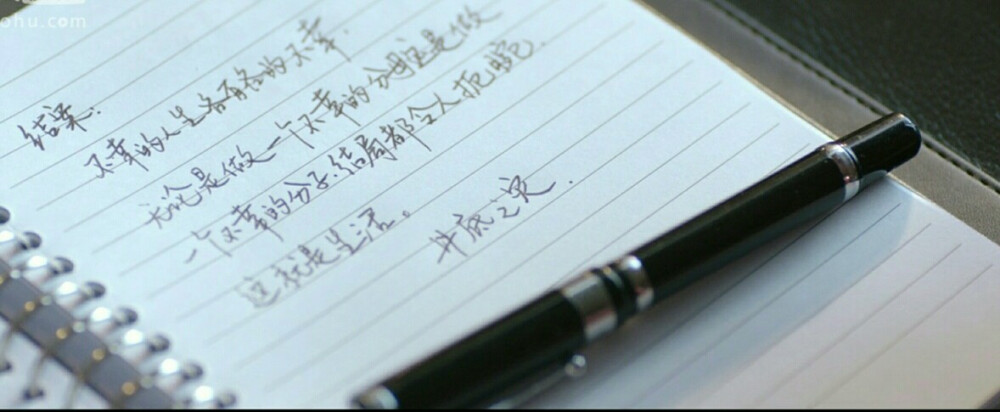 ohu.com
结果:
不幸的人生各有各的不幸.
无论是做一个不幸的分母还是做
一个不幸的分子.结局都令人扼腕.
这就是生活。
井底之灵.